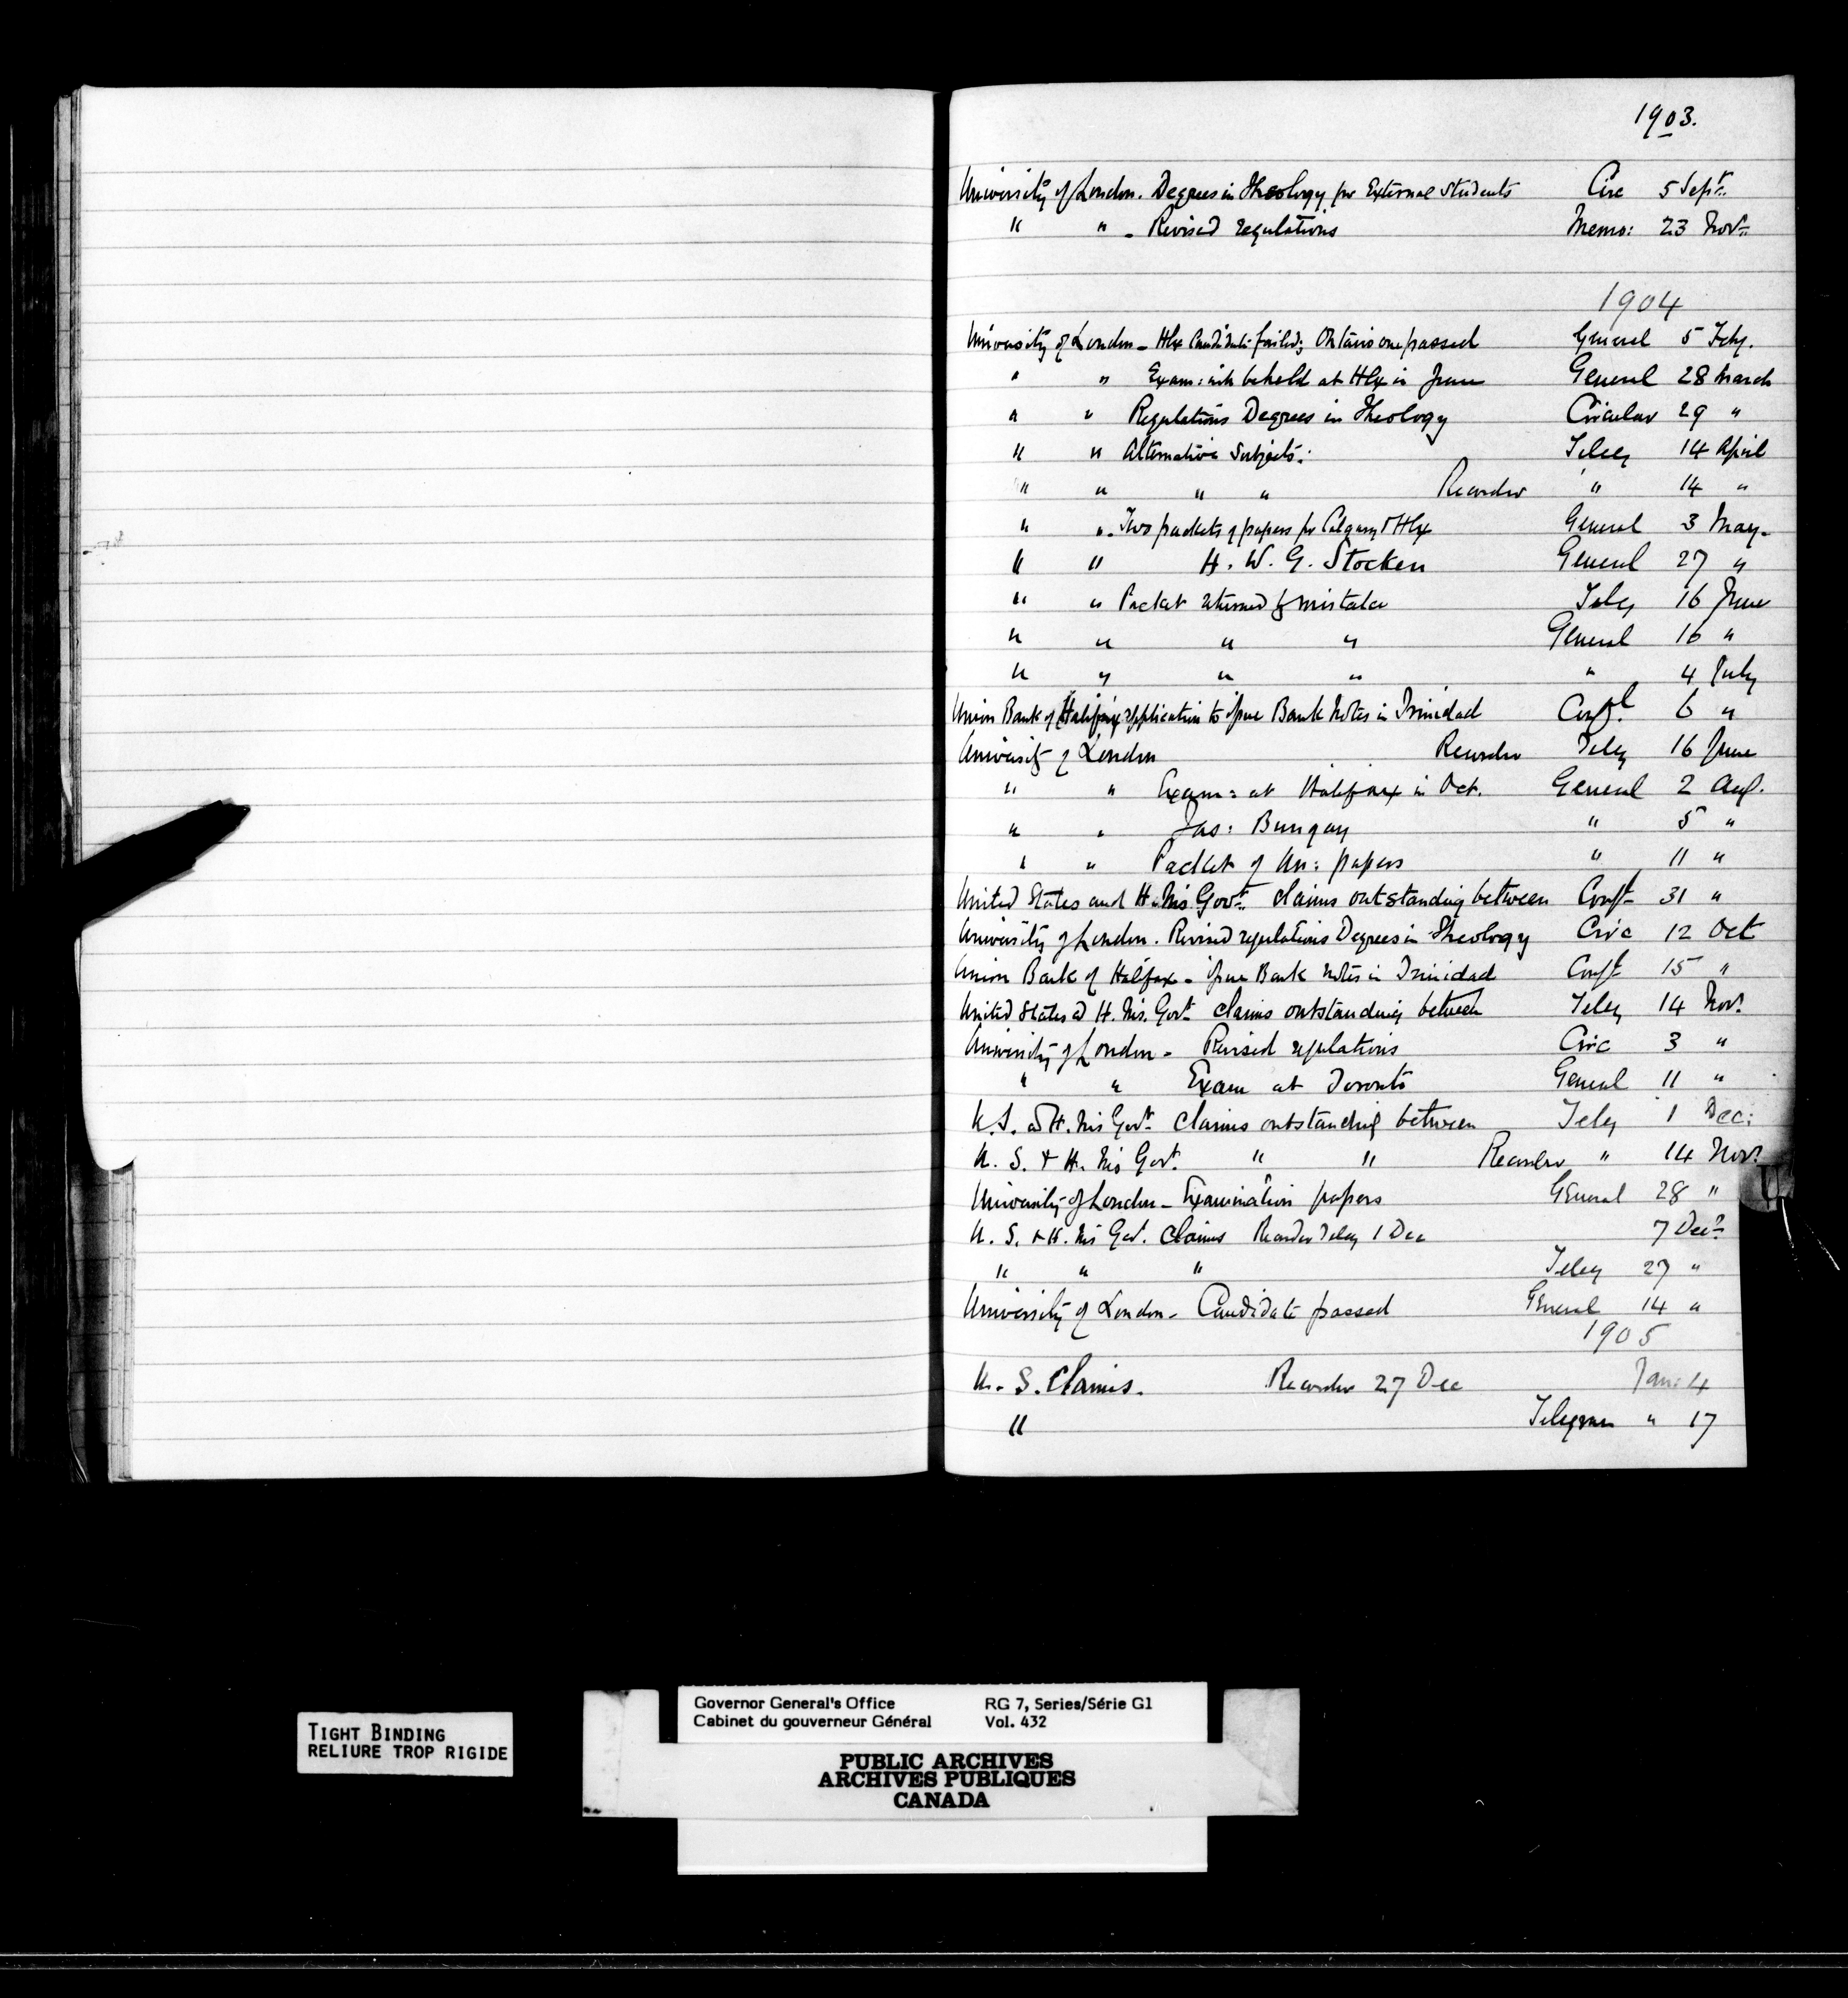 1903.
University of London. Degrees in Theology for External Students Circ 5 Sept.
" " - Revised regulations Memo: 23 Nov.
1904
University of London - Hlx Candidate failed; Ontario one passed General 5 Feby.
" " Exam: will be held at Hlx in June General 28 March
" " Regulations Degrees in Theology Circular 29 "
" " Alternative Subjects. Teleg 14 April
" " " " Recorder " 14 "
" " - Two packets of papers for Calgary & Hlx General 3 May.
" " H. W. G. Stocken General 27 "
" " Packet returned by mistake Teleg 16 June
" " " " General 16 "
" " " " " 4 July
Union Bank of Halifax application to issue Bank Notes in Trinidad Confl. 6 "
University of London Recorder Teleg 16 June
" " Exam: at Halifax in Oct. General 2 Aug.
" " Jas: Bungay " 5 "
" " Packet of Un: papers " 11 "
United States and H. Ms. Govt. claims outstanding between Conft 31 "
University of London. Revised regulations Degrees in Theology Circ 12 Oct
Union Bank of Halifax - issue Bank Notes in Trinidad Conft 15 "
United States & H. Ms. Govt. claims outstanding between Teleg 14 Nov.
University of London - Revised regulations Circ 3 "
" " Exam at Toronto General 11 "
U.S. & H. Ms Govt. claims outstanding between Teleg 1 Dec:
U. S. & H. Ms Govt. " " Recorder " 14 Nov.
University of London - Examination papers General 28 "
U. S. & H. Ms Gov. claims Recorder Teleg 1 Dec 7 Decr
" " " Teleg 27 "
University of London - Candidate passed General 14 "
1905
U. S. Claims. Recorder 27 Dec Jan: 4
" Telegram " 17
TIGHT BINDING
RELIURE TROP RIGIDE
Governor General's Office RG 7, Series/Série G1
Cabinet du gouverneur Général Vol. 432
PUBLIC ARCHIVES
ARCHIVES PUBLIQUES
CANADA